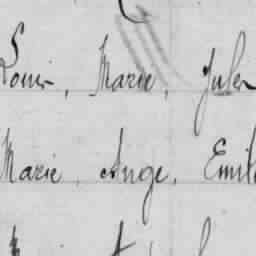 Louis, Marie, Jules
Marie, Ange, Emile